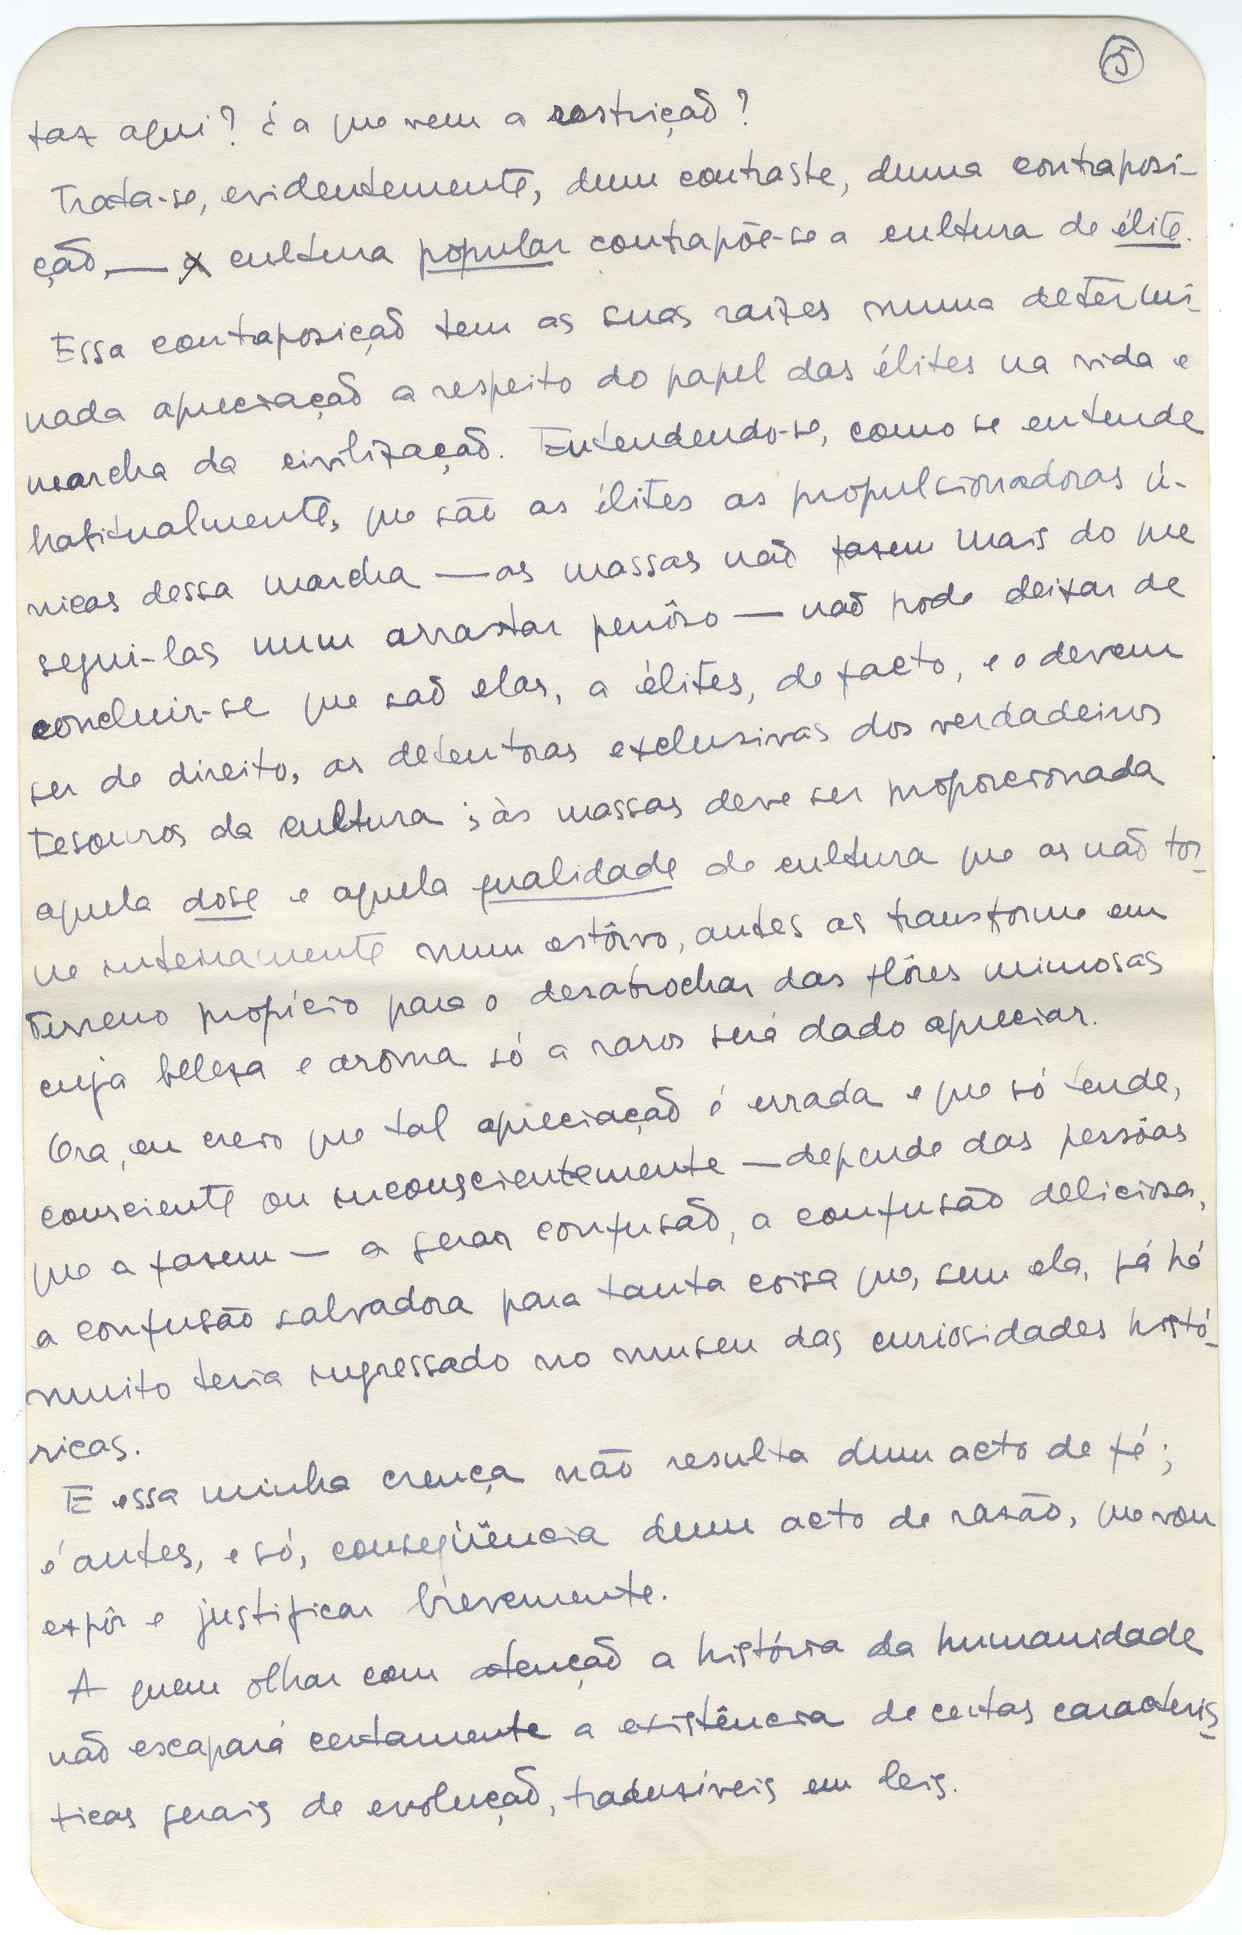 5
faz aqui? ¿a que vem a restrição?
Trata-se, evidentemente, dum contraste, duma contraposi-
ção, — cultura popular contrapõe-se a cultura de élite.
Essa contraposição tem as suas raízes numa determi-
nada apreciação a respeito do papel das élites na vida e
marcha da civilização. Entendendo-se, como se entende
habitualmente, que são as élites as propulsionadoras ú-
nicas dessa marcha — as massas não fazem mais do que
segui-las num arrastar penôso — não pode deixar de
concluir-se que são elas, a élites, de facto, e o devem
ser de direito, as detentoras exclusivas dos verdadeiros
tesouros da cultura; às massas deve ser proporcionada
aquela dose e aquela qualidade de cultura que as não tor-
ne inteiramente num estôrvo, antes as transforme em
terreno propício para o desabrochar das flôres mimosas
cuja beleza e aroma só a raros será dado apreciar.
Ora, eu creio que tal apreciação é errada e que só tende,
consciente ou inconscientemente — depende das pessôas
que a fazem — a gerar confusão, a confusão deliciosa,
a confusão salvadora para tanta coisa que, sem ela, já há
muito teria ingressado no museu das curiosidades histó-
ricas.
E essa minha crença não resulta dum acto de fé;
é antes, e só, conseqüência dum acto de razão, que vou
expôr e justificar brevemente.
A quem olhar com atenção a história da humanidade
não escapará certamente a existência de certas caracterís-
ticas gerais de evolução, traduzíveis em leis.